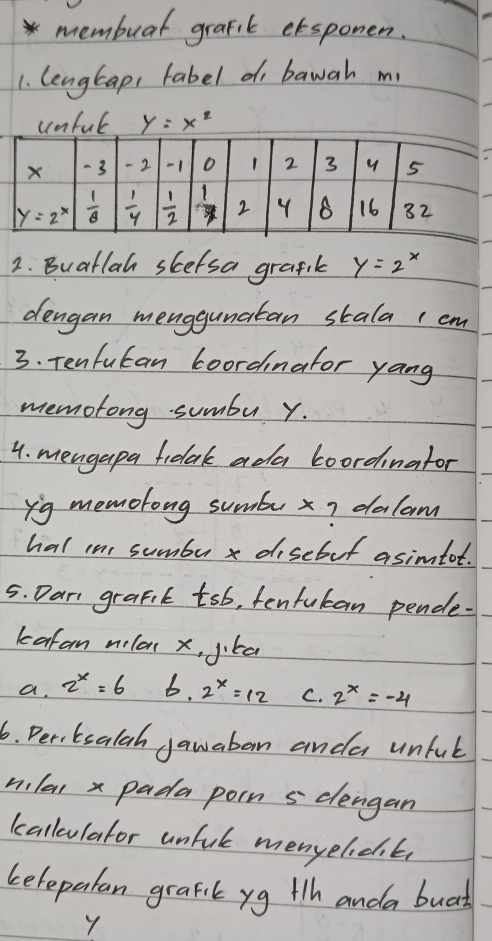 * membuat grafik eksponen.
1. Lengkapi tabel di bawah ini
untuk y = x²
x -3 -2 -1 0 1 2 3 4 5
y = 2ˣ 1/8 1/4 1/2 1 2 4 8 16 32
2. Buatlah sketsa grafik y = 2ˣ
dengan menggunakan skala 1 cm
3. Tentukan koordinator yang
memotong sumbu y.
4. mengapa tidak ada koordinator
yg memotong sumbu x ? dalam
hal ini sumbu x disebut asimtot.
5. Dari grafik tsb, tentukan pende-
katan nilai x, jika
a. 2ˣ = 6 b. 2ˣ = 12 c. 2ˣ = -4
6. Periksalah jawaban anda untuk
nilai x pada poin 5 dengan
kalkulator untuk menyelidiki
ketepatan grafik yg tlh anda buat
y